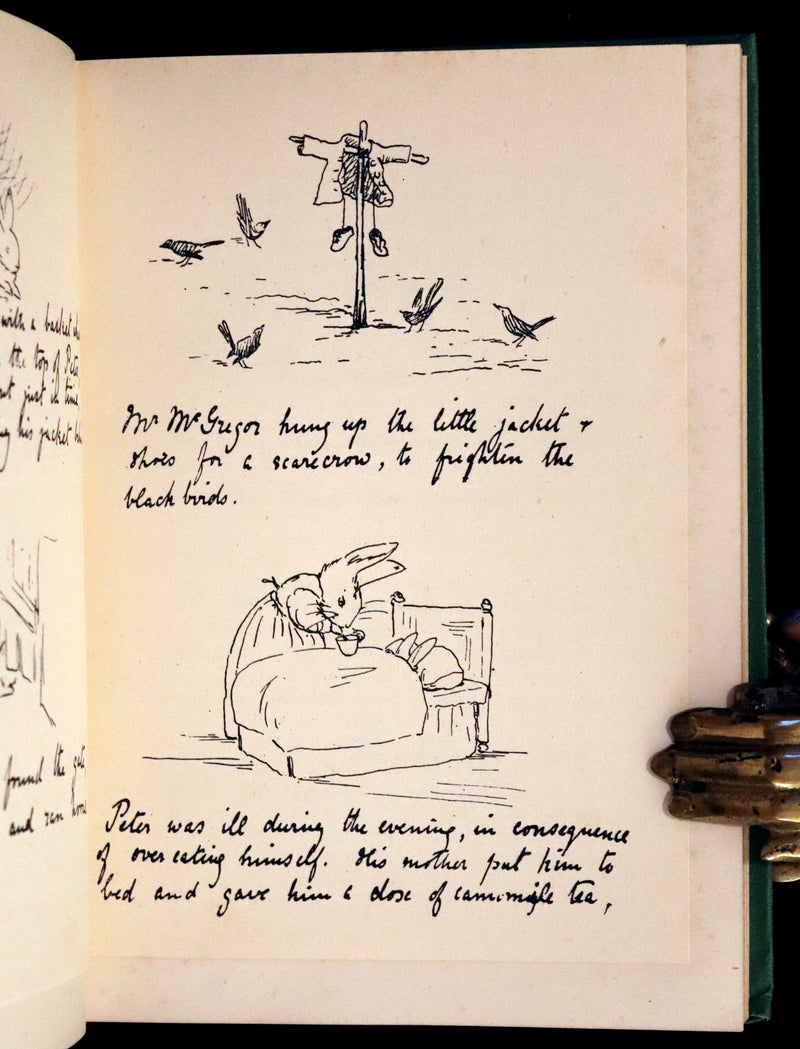 with a basket
the top of Pete
but just in time,
his jacket
Mr McGregor hung up the little jacket &
shoes for a scarecrow, to frighten the
black birds.
found the
and ran home
Peter was ill during the evening, in consequence
of over eating himself. His mother put him to
bed and gave him a dose of camomile tea,